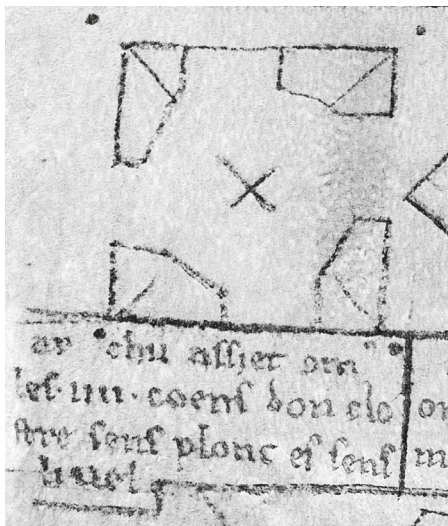 ar chu assiet om
les · iiii · coens don clo
stre sens plonc et sens
liuel